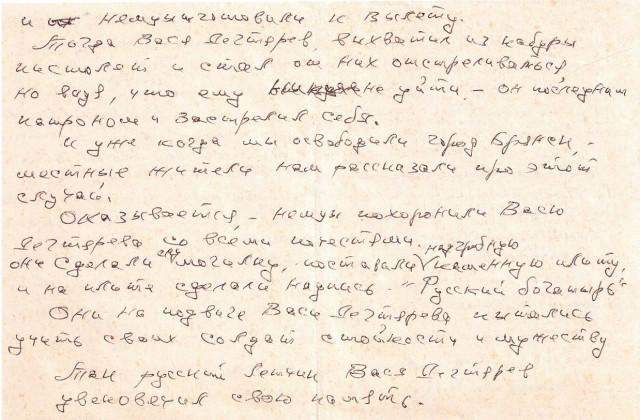 и немцы готовили к вылету.
Тогда Вася Дегтярев, выхватил из кабуры
пистолет и стал от них отстреливаться
но видя, что ему не уйти – он последним
патроном и застрелил себя.
И уже когда мы освободили город Брянск, –
местные жители нам рассказали про этот
случай.
Оказывается, – немцы похоронили Васю
Дегтярева со всеми почестями.
они сделали ему могилку, поставили надгробную каменную плиту,
и на плите сделали надпись – "Русский богатырь"
Они на подвиге Васи Дегтярева пытались
учить своих солдат стойкости и мужеству
Так русский летчик Вася Дегтярев
увековечил свою память.